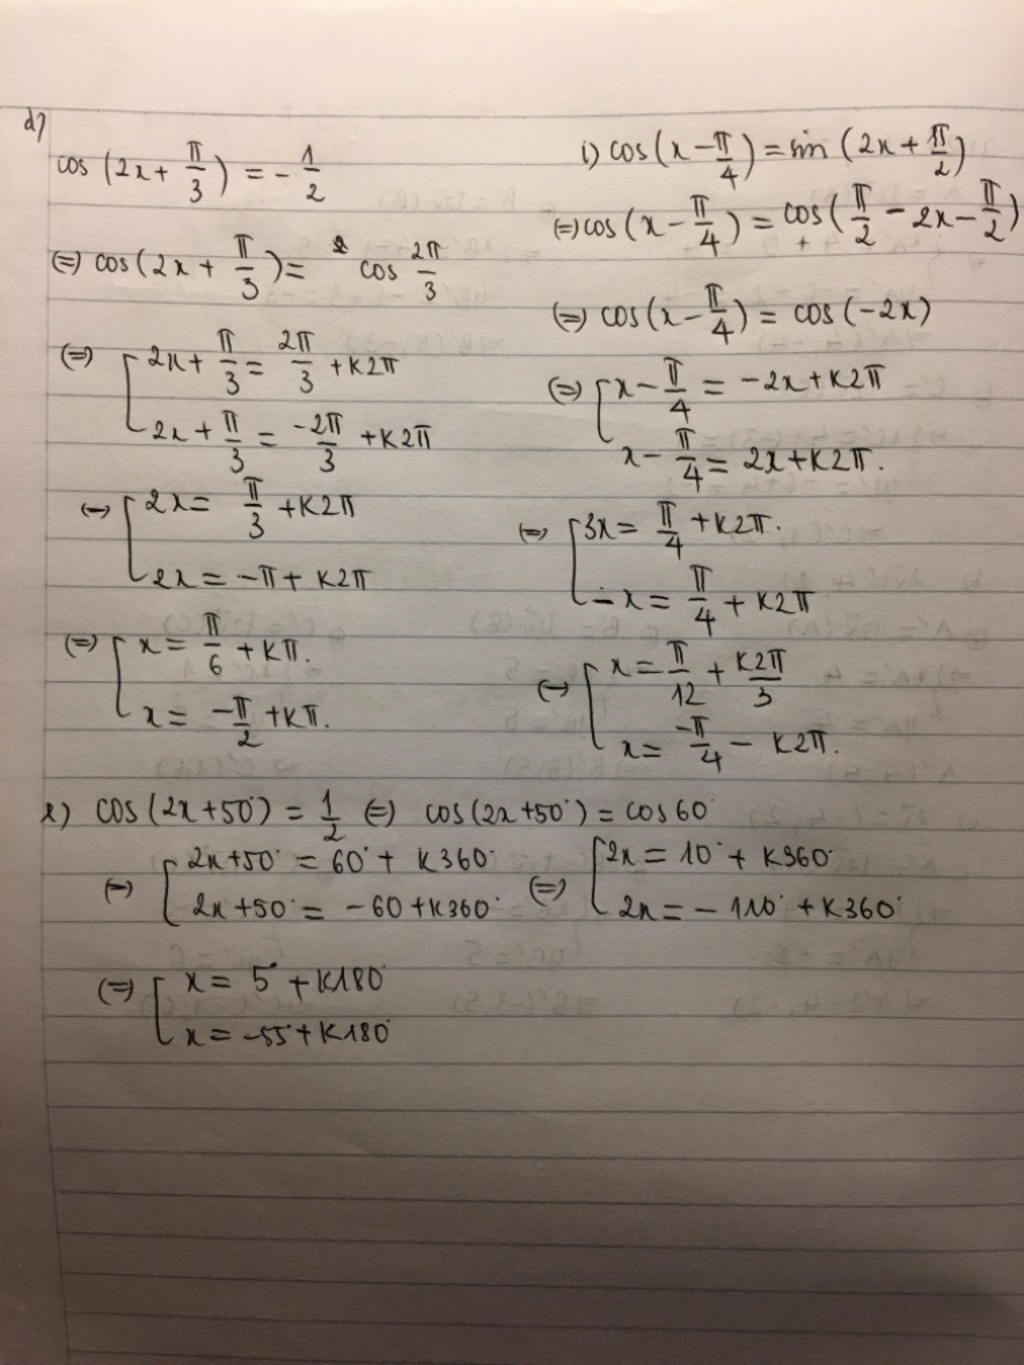 d)
cos (2x + π/3) = - 1/2
(=) cos(2x + π/3) = cos 2π/3
(=) [ 2x + π/3 = 2π/3 + K2π
2x + π/3 = -2π/3 + K2π
(=) [ 2x = π/3 + K2π
2x = -π + K2π
(=) [ x = π/6 + Kπ.
x = -π/2 + Kπ.
i) cos(x - π/4) = sin (2x + π/2)
(=) cos(x - π/4) = cos(π/2 - 2x - π/2)
(=) cos(x - π/4) = cos(-2x)
(=) [ x - π/4 = -2x + K2π
x - π/4 = 2x + K2π.
(=) [ 3x = π/4 + K2π.
-x = π/4 + K2π
(=) [ x = π/12 + K2π/3
x = -π/4 - K2π.
l) cos(2x+50°) = 1/2 (=) cos(2x+50°) = cos60°
(=) [ 2x+50° = 60° + K360° (=) [ 2x = 10° + K360°
2x+50° = -60 + K360° 2x = -110° + K360°
(=) [ x = 5° + K180°
x = -55° + K180°